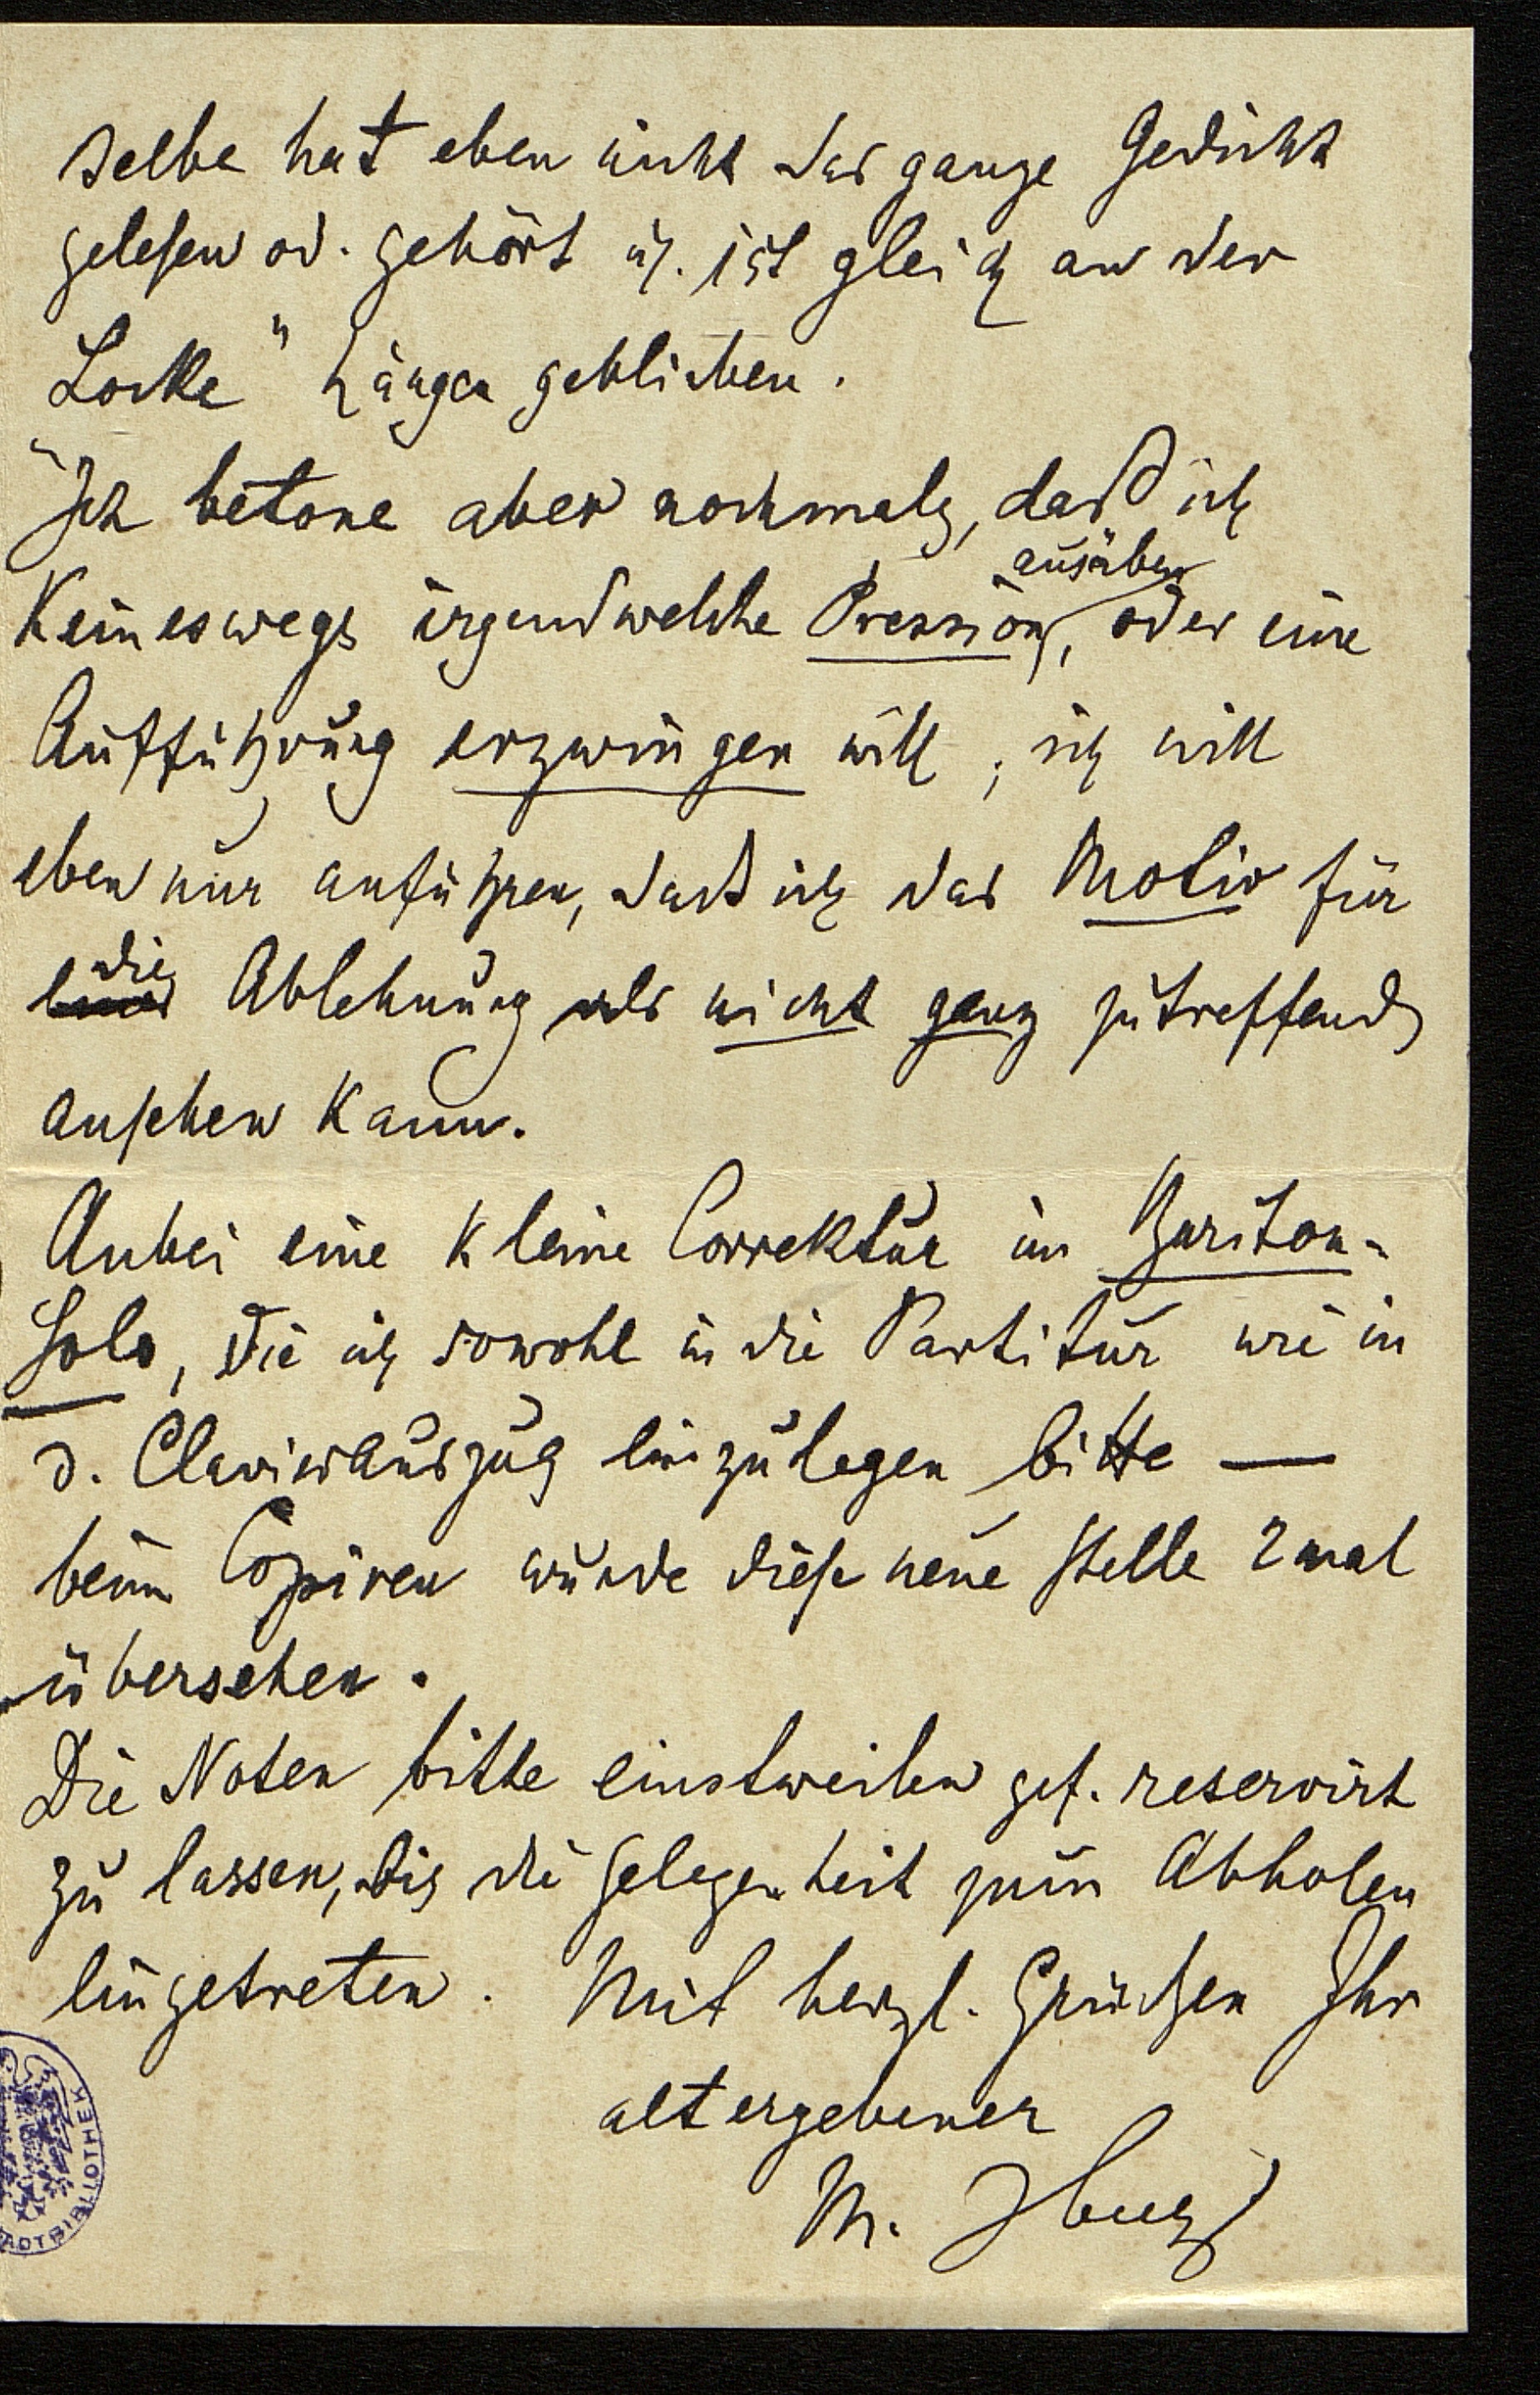 selbe hat eben nicht das ganze Gedicht
gelesen od. gehört u. ist gleich an der
„Locke" hängen geblieben.
Ich betone aber nochmals, daß ich
keineswegs irgendwelche Pression ausüben, oder eine
Aufführung erzwingen will; ich will
eben nur anführen, daß ich das Motiv für
die Ablehnung als nicht ganz zutreffend
ansehen kann.
Anbei eine kleine Correktur im Bariton-
Solo, die ich sowohl in die Partitur wie in
d. Clavierauszug einzulegen bitte —
beim Copiren wurde diese neue Stelle 2 mal
übersehen.
Die Noten bitte einstweilen gef. reservirt
zu lassen, bis die Gelegenheit zum Abholen
eingetreten. Mit herzl. Grüßen Ihr
altergebener
M.
STADTBIBLIOTHEK